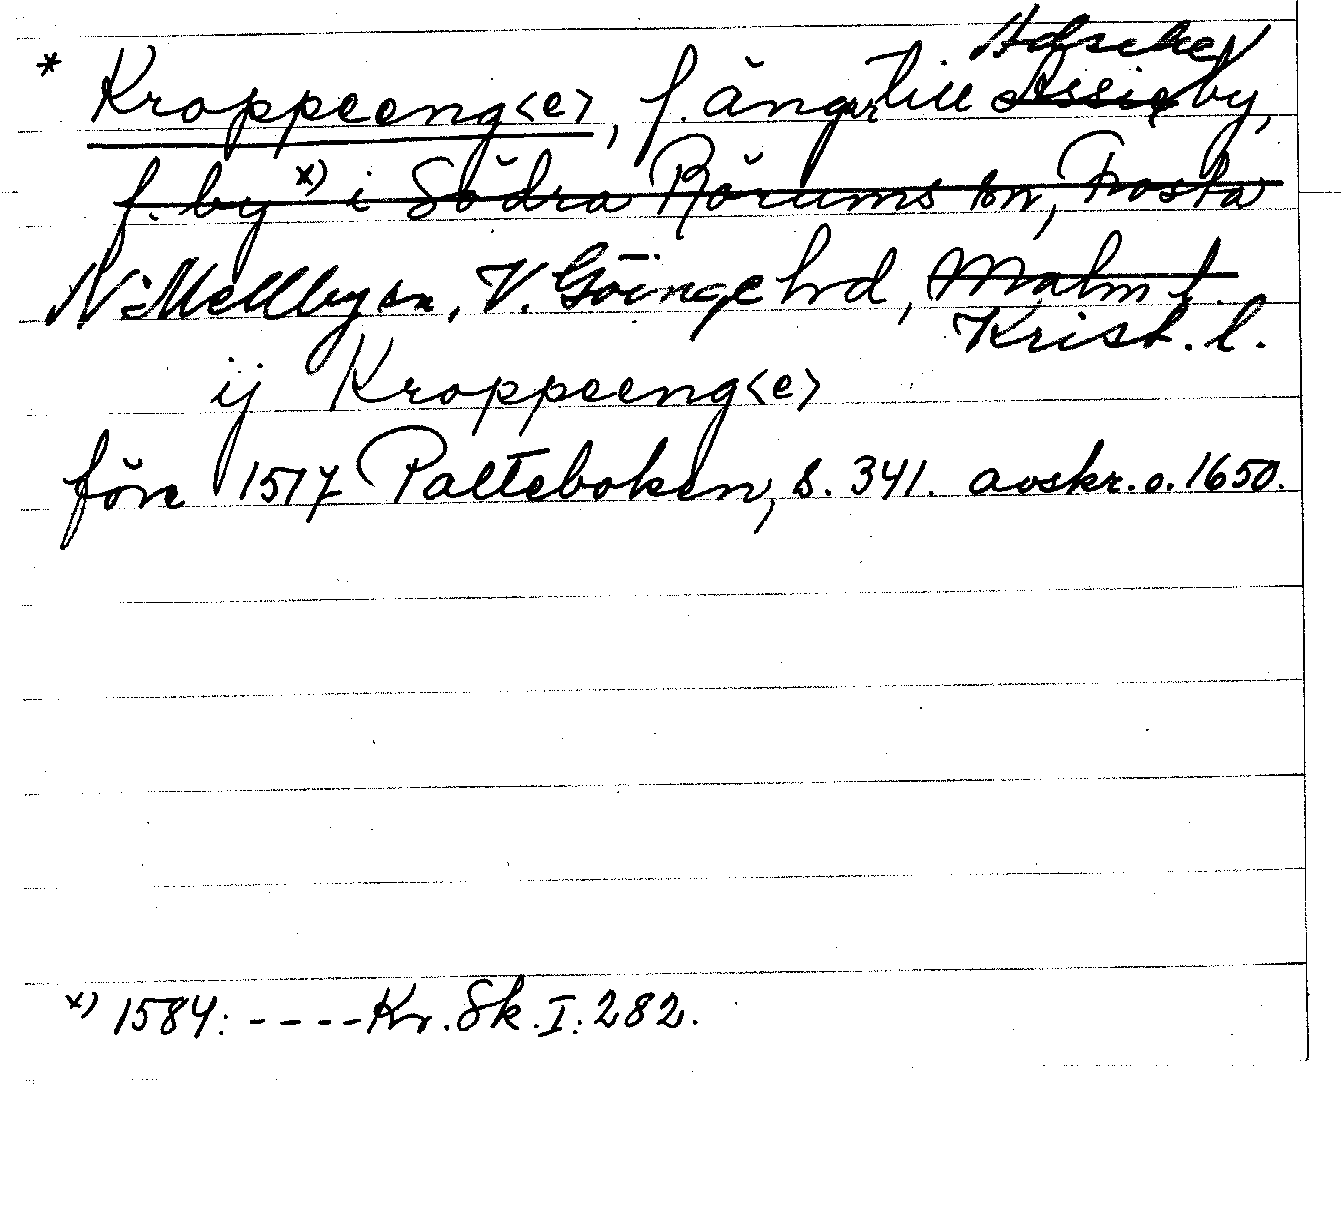 Adseke
* Kroppeeng<e>, f. ängar till Assie by,
f. by x) i Södra Rörums sn, Frosta
N. Mellby sn, V. Göinge hrd, Malm. l.
Krist. l.
ij Kroppeeng<e>
före 1517 Palteboken, s. 341. avskr. o. 1650.
x) 1584: ----Kr. Sk. I: 282.